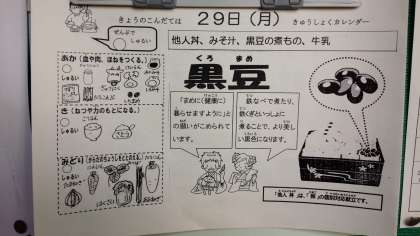 きょうのこんだては
29日(月)
きゅうしょくカレンダー
他人丼、みそ汁、黒豆の煮もの、牛乳
ぜんぶで
しゅるい
あか(血や肉、ほねをつくる。)
しゅるい
き(ねつや力のもとになる。)
しゅるい
ごはん
さとう
みどり(からだのちょうしをととのえる。)
しゅるい
くろ まめ
黒豆
「まめに(健康に)
暮らせますように」と
の願いがこめられて
います。
鉄なべで煮たり、
鉄くぎといっしょに
煮ることで、より美し
い黒色になります。
「他人丼」は、「卵」の個別対応献立です。